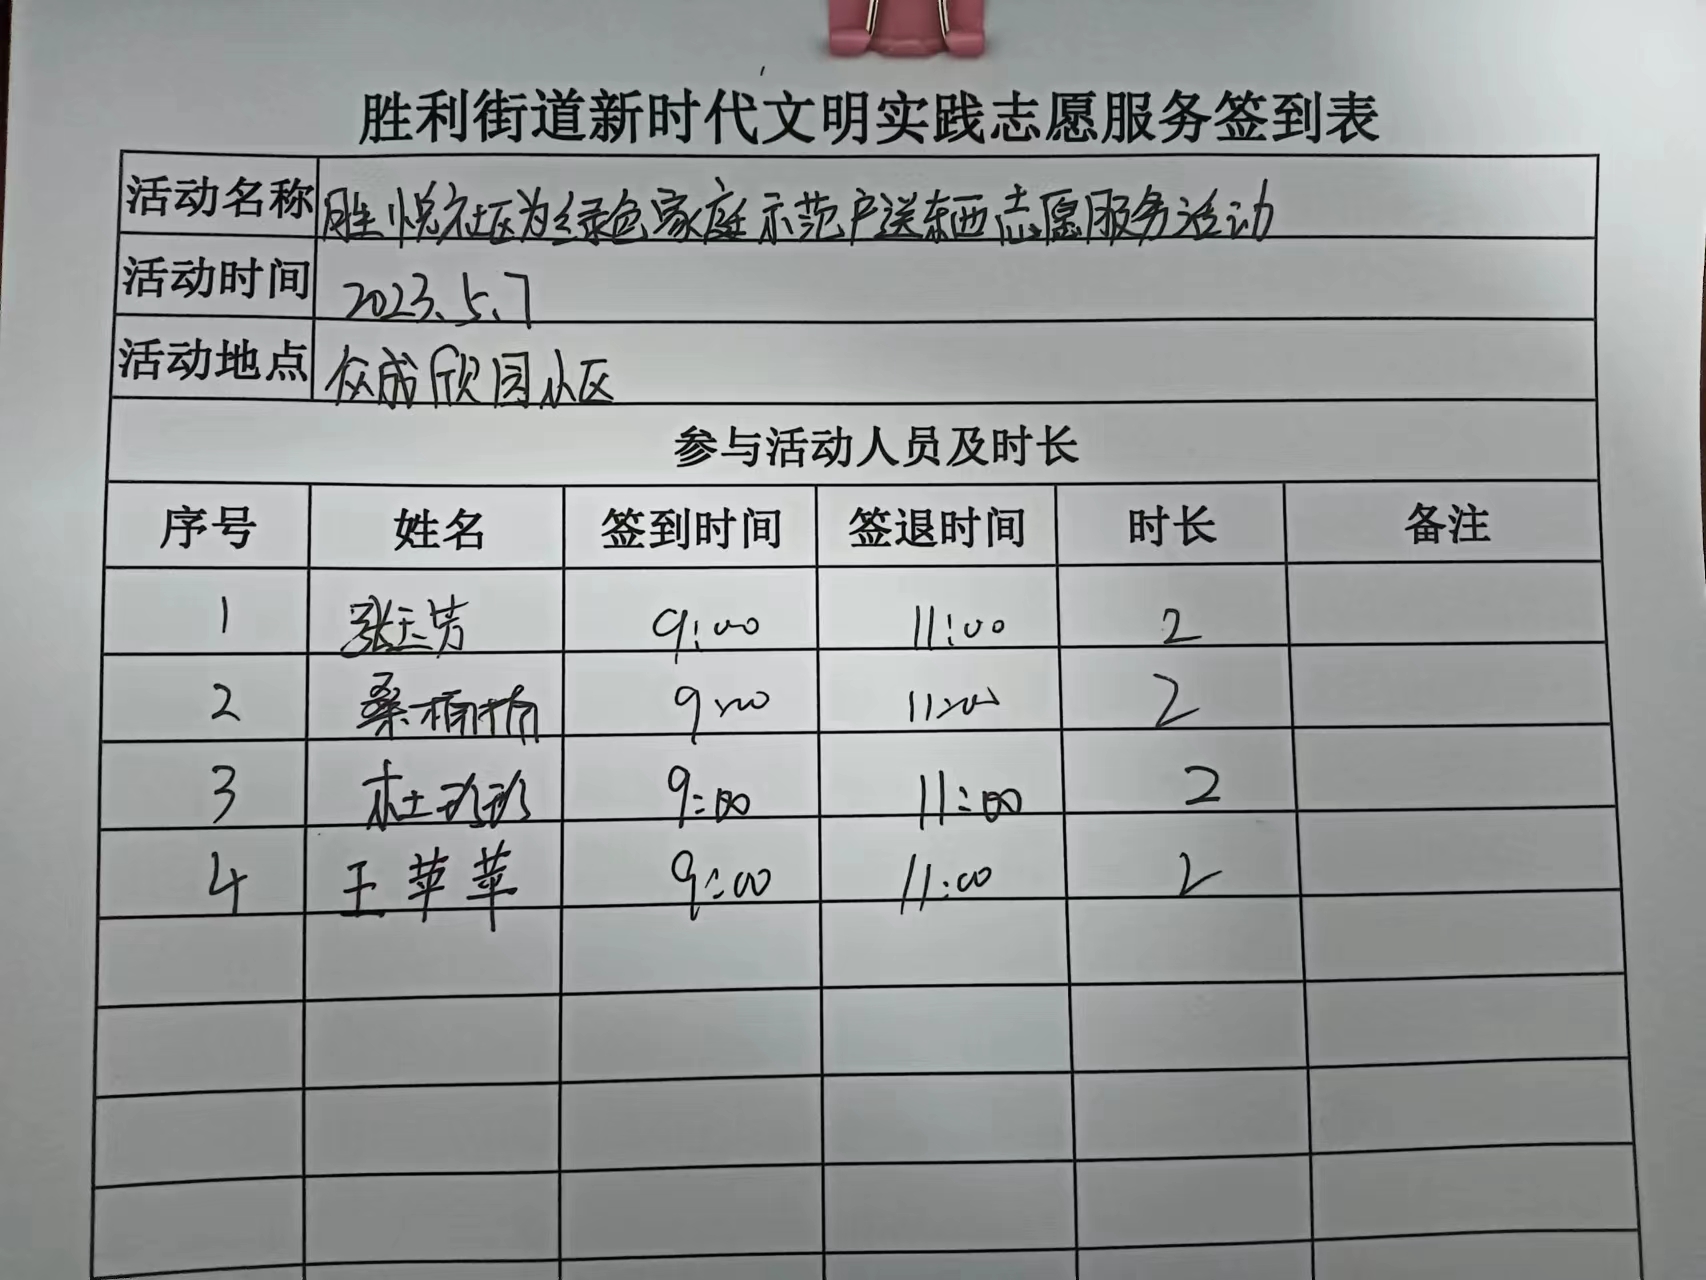 胜利街道新时代文明实践志愿服务签到表
活动名称 胜悦社区为绿色家庭示范户送东西志愿服务活动
活动时间 2023.5.7
活动地点 众成欣园小区
参与活动人员及时长
序号 姓名 签到时间 签退时间 时长 备注
1 张玉芳 9:00 11:00 2
2 桑楠楠 9:00 11:00 2
3 杜彤彤 9:00 11:00 2
4 王苹苹 9:00 11:00 2